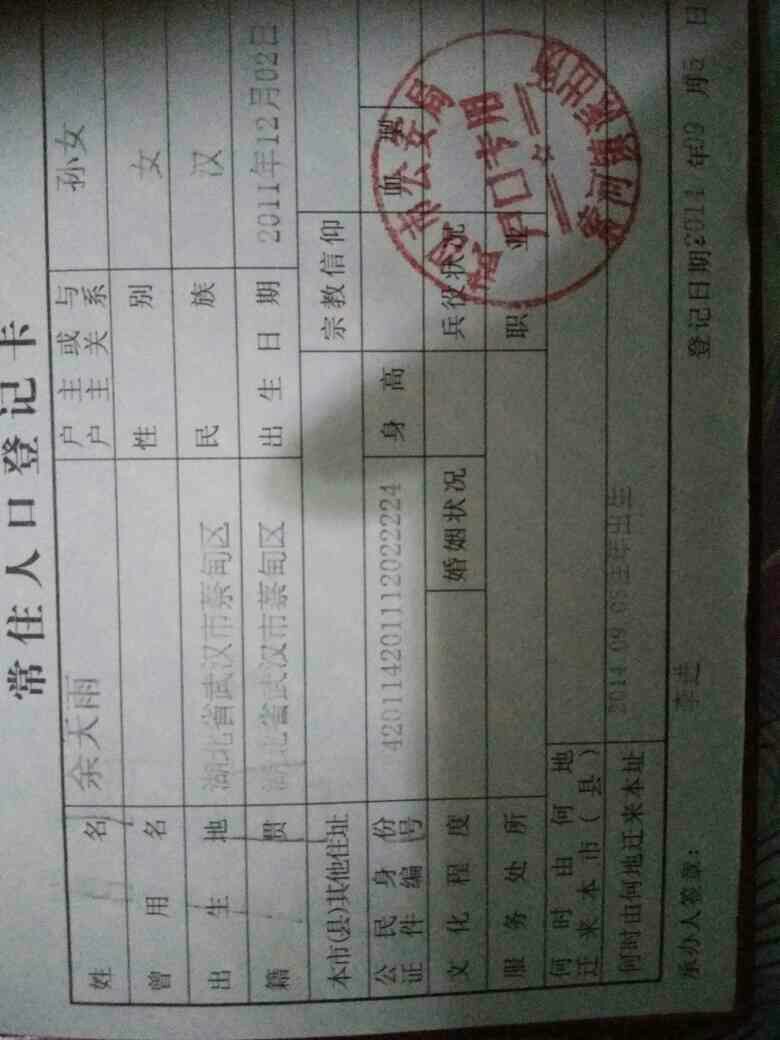 常住人口登记卡
姓名 余天雨 户主或与户主关系 孙女
曾用名 性别 女
出生地 湖北省武汉市蔡甸区 民族 汉
籍贯 湖北省武汉市蔡甸区 出生日期 2011年12月02日
本市(县)其他住址 宗教信仰
公民身份证件编号 420114201112022224 身高 血型
文化程度 婚姻状况 兵役状况
服务处所 职业
何时由何地迁来本市(县)
何时由何地迁来本址
承办人签章: 李进 登记日期: 年 月 日
户口专用